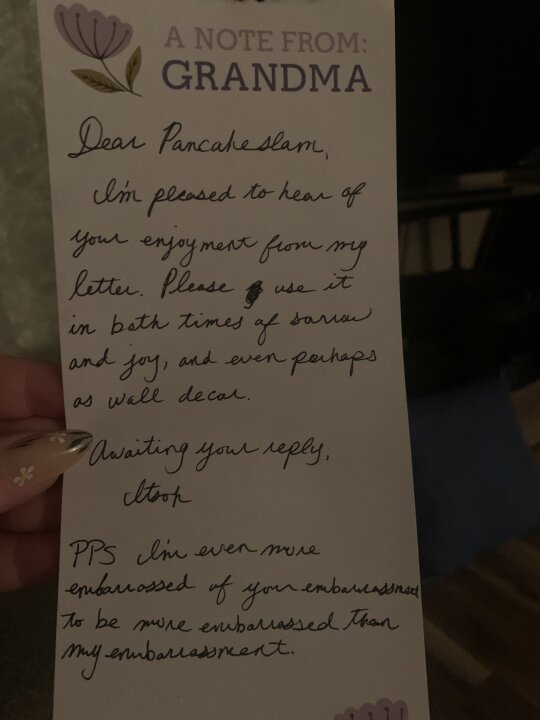 A NOTE FROM:
GRANDMA
Dear Pancakeslam,
I'm pleased to hear of
your enjoyment from my
letter. Please use it
in both times of sorrow
and joy, and even perhaps
as wall decor.
Awaiting your reply,
Itsoh
PPS I'm even more
embarrassed of your embarrassment
to be more embarrassed than
my embarrassment.